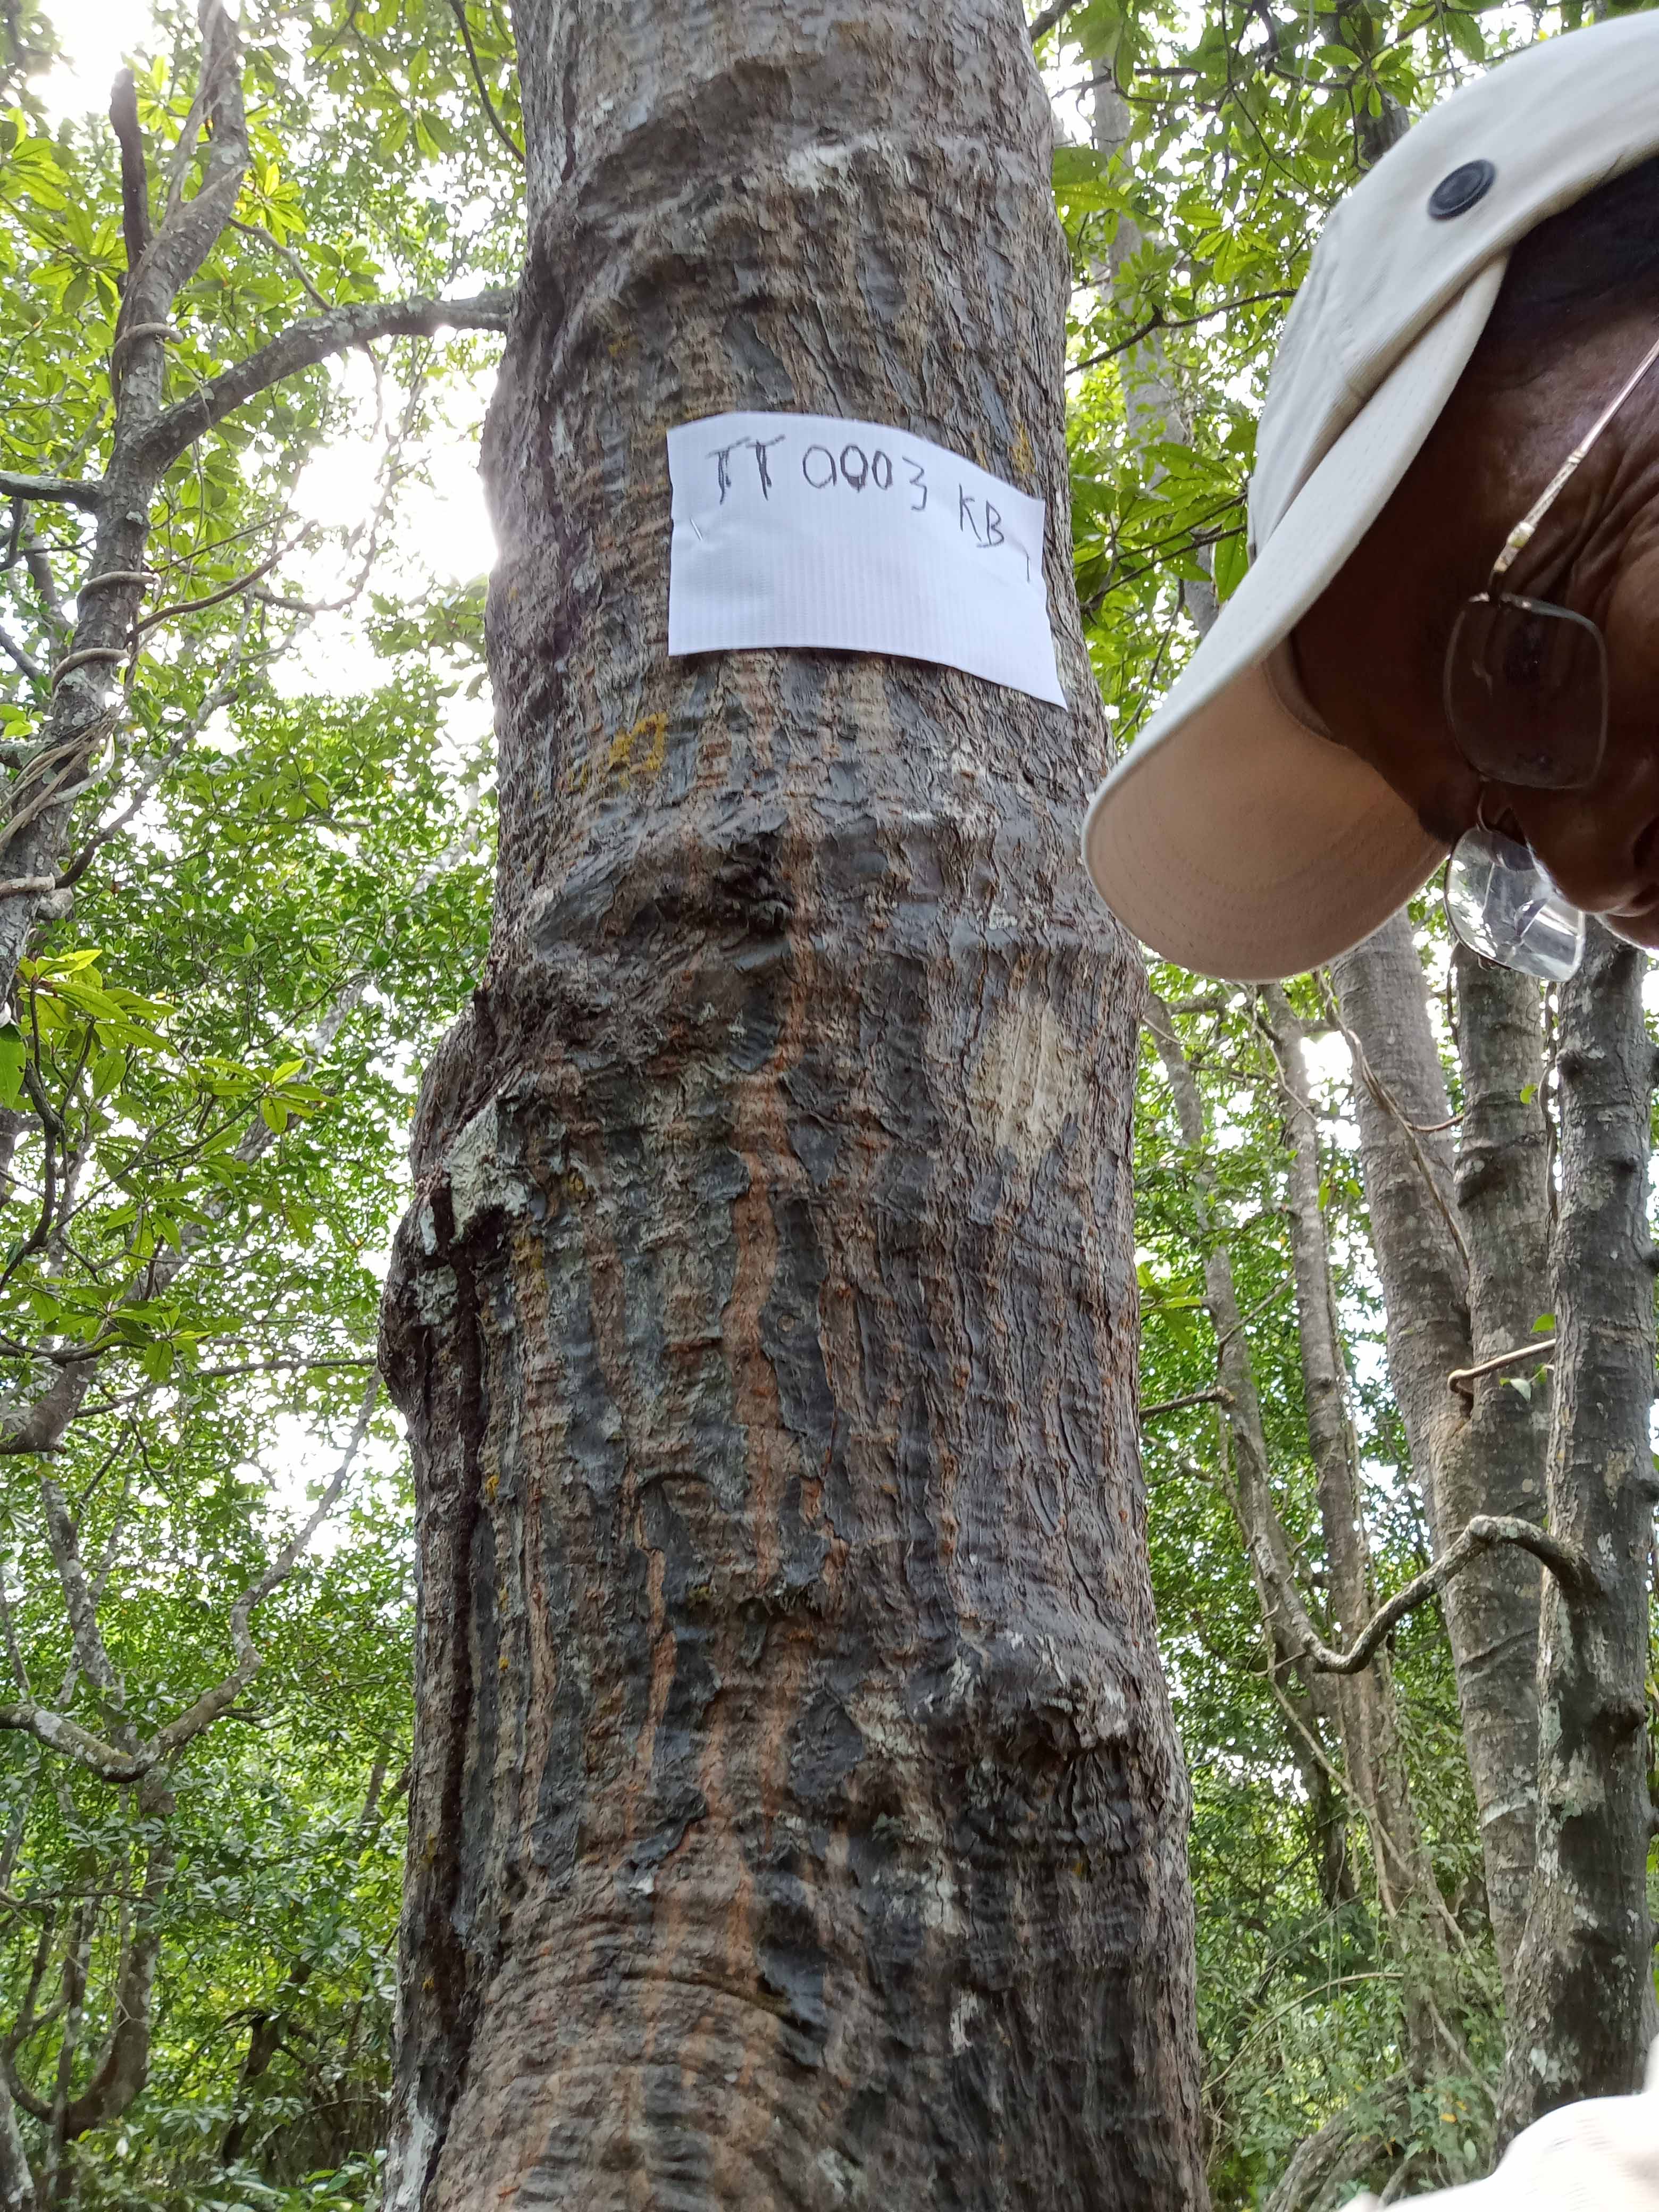 TT 0003 KB